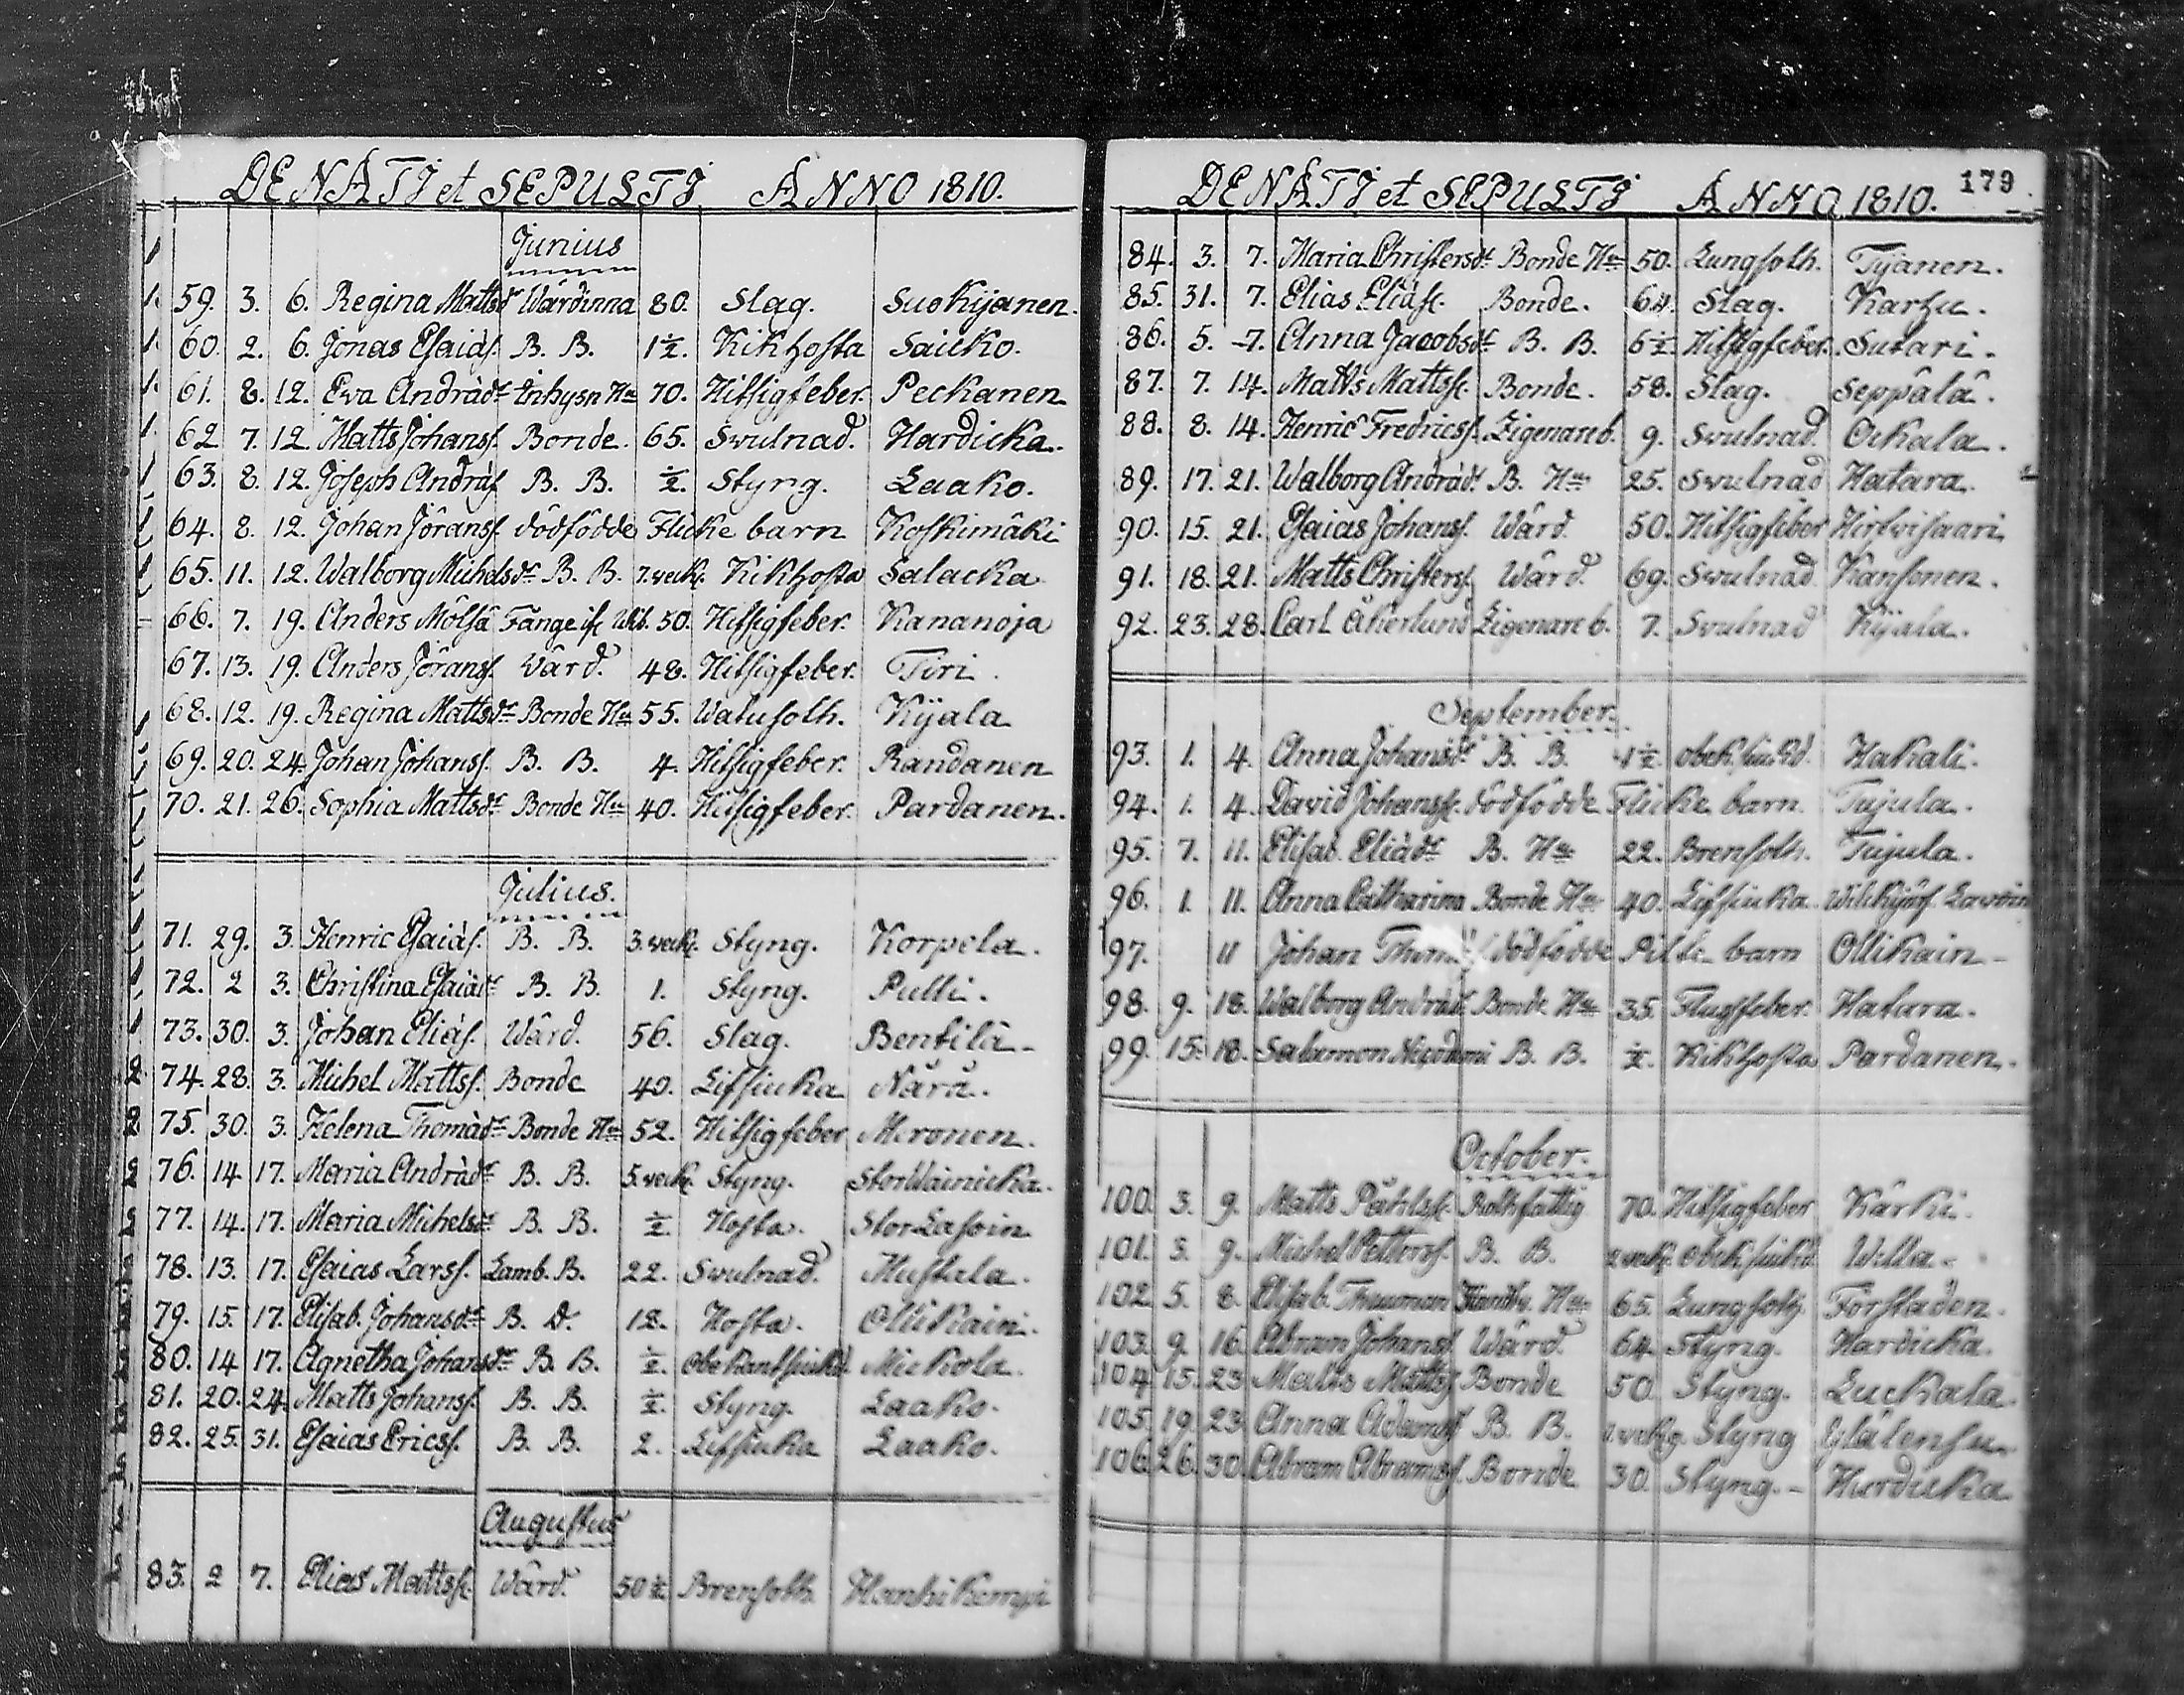 DENATJ et SEPULTJ ANNO 1810.
Junius
59. 3. 6. Regina Mattsdr Wärdinna 80. Slag. Suokijanen.
60. 2. 6. Jonas Esaias. B. B. 1½. Kikhosta Saicko.
61. 8. 12. Ewa Andrädr Inhysn Hu 70. Hitsigfeber. Peckanen
62 7. 12. Matts Johanss. Bonde. 65. Swulnad. Hardicka.
63. 8. 12. Joseph Andräs B. B. ½. Styng. Laako.
64. 8. 12. Johan Jöranss. dödfödde Flicke barn Koskimäki
65. 11. 12. Walborg Michelsdr B. B. 7. veck. Kikhosta Salacka
66. 7. 19. Anders Mölsä Fånge 50. Hitsigfeber. Kananoja
67. 13. 19. Anders Jöranss. Wärd. 48. Hitsigfeber. Tiri.
68. 12. 19. Regina Mattsdr Bonde Hu 55. Watusoth. Kijala
69. 20. 24. Johan Johanss. B. B. 4. Hitsigfeber. Randanen
70. 21. 26. Sophia Mattsdr Bonde Hu 40. Hitsigfeber. Pardanen.
Julius.
71. 29. 3. Henric Esaiäs. B. B. 3. veck. Styng. Korpela.
72. 2 3. Christina Esaiädr B. B. 1. Styng. Pulli.
73. 30. 3. Johan Eliäs. Wärd. 56. Slag. Bentilä.
74. 28. 3. Michel Mattss. Bonde 40. Lifsiuka Närä.
75. 30. 3. Helena Thomädr Bonde Hu 52. Hitsigfeber Mironen.
76. 14 17. Maria Andrädr B. B. 5. veck. Styng. StorWainicka.
77. 14. 17. Maria Michelsdr B. B. ½. Hosta. StorLasoin
78. 13. 17. Esaias Larss. Lamb. B. 22. Swulnad. Mustala.
79. 15. 17. Elisab. Johansdr B. D. 12. Hosta. Ollikain.
80. 14 17. Agnetha Johansdr B. B. ½. Obekantsiukd. Mickola.
81. 20. 24. Matts Johanss. B. B. ½. Styng. Laako.
82. 25. 31. Esaias Ericss. B. B. 2. Lifsiuka Laako.
Augustus
83. 2 7. Elias Mattss. Wärd. 50½ Brensoth.
DENATJ et SEPULTJ ANNO 1810. 179
84. 3. 7. Maria Christersdr Bonde Hu 50. Lungsoth. Tijanen.
85. 31. 7. Elias Eliäss. Bonde. 64. Slag. Karhu.
86. 5. 7. Anna Jacobsdr B. B. 6½. Hitsigfeber. Sutari.
87. 7. 14. Matts Mattss. Bonde. 58. Slag. Seppälä.
88. 8. 14. Henric Fredricss. Zigenare b. 9. Swulnad. Orkala.
89. 17. 21. Walborg Andrädr. B. Hu 25. Swulnad Hatara.
90. 15. 21. Esaias Johanss. Wärd. 50. Hitsigfeber Hirfwisaari
91. 18. 21. Matts Christerss. Wärd. 69. Swulnad. Kansonen.
92. 23. 28. Carl Åkerlund Zigenare b. 7. Swulnad Kijala.
September.
93. 1. 4. Anna Johansdr B. B. 1½. obek. siukd. Hakali.
94. 1. 4. David Johanss. dödfödde Flicke barn. Tujula.
95. 7. 11. Elisab. Eliädr B. Hu 22. Brensoth. Tujula.
96. 1. 11. Anna Catharina Bonde Hu 40. Lifsiuka.
97. 11 Johan dödfödde Pilte barn Ollikain
98. 9. 18. Walborg Andrädr Bonde Hu 35. Flussfeber. Hatara.
99. 15. 18. Salamon Nicodemi B. B. ½. Kikhosta Pardanen.
October.
100. 3. 9. Matts Påhlss. Rothfattig 70. Hitsigfeber Kärki.
101. 3. 9. Michel Petterss. B. B. 2 veck. obek. siukd. Willa.
102. 5. 8. Elisab. Thauman Hu 65. Lungsoth. Förstaden.
103. 9. 16. Abram Johanss. Wärd. 64. Styng. Hardicka.
104 15. 23 Matts Mattss. Bonde 50. Styng. Luckala.
105. 19. 23. Anna B. B. Styng
106. 26. 30. Abram Abramss. Bonde 30. Styng. Hurdicka